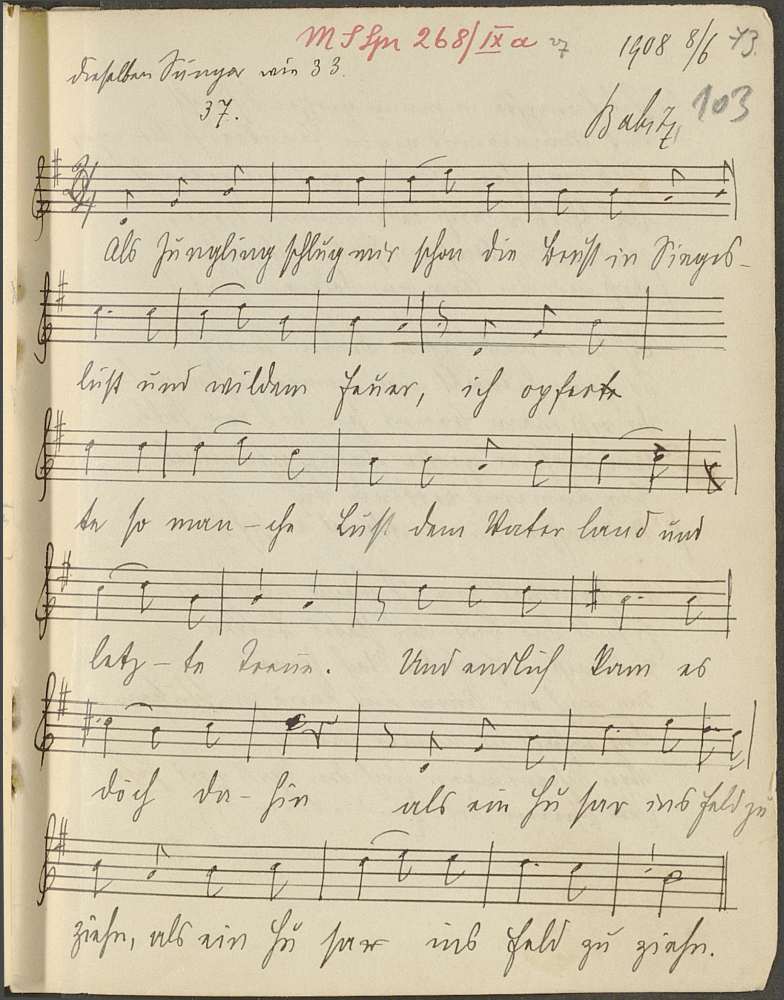 MS Spr 268/IXa 27
1908 8/6 73.
dieselben Sänger wie 33.
37.
Babitz
103
Als Jüngling schlug mir schon die Brust in Sieges-
lust und wildem Feuer, ich opferte
te so man-che Lust dem Vater land und
letz-te Treue. Und endlich kam es
doch da-hin als ein Hu sar ins Feld zu
ziehn, als ein Hu sar ins Feld zu ziehn.